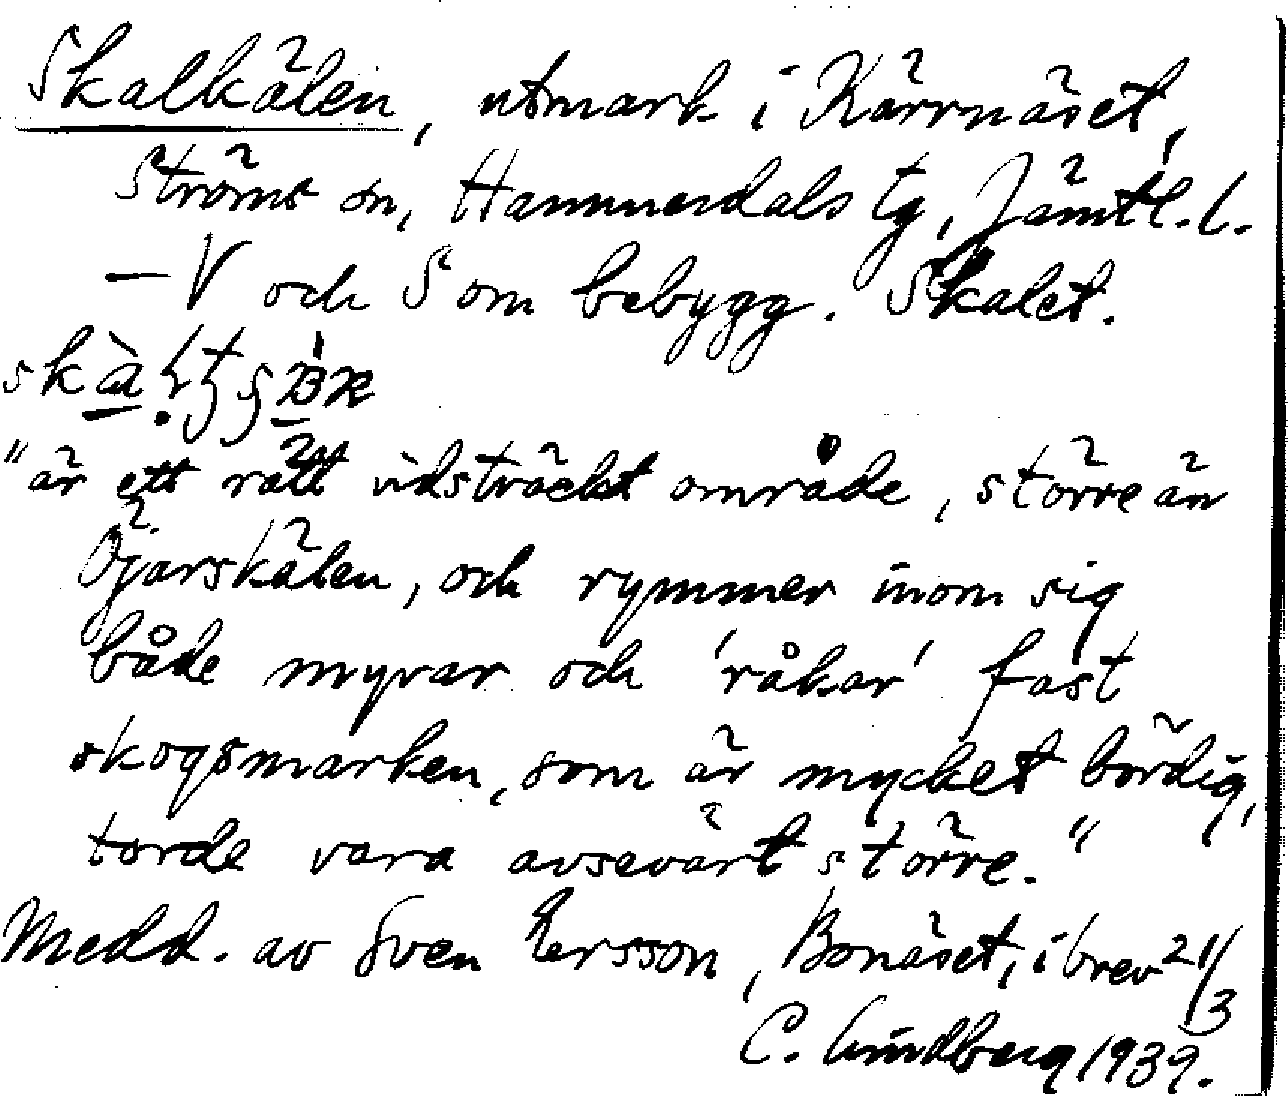 Skalkälen, utmark i Kärrnäset,
Ströms sn, Hammerdals tg, Jämtl. l.
– V och S om bebygg. Skalet.
"är ett rätt vidsträckt område, större än
Öjarskälen, och rymmer inom sig
både myrar och 'råkar' fast
skogsmarken, som är mycket bördig,
torde vara avsevärt större."
Medd. av Sven Persson, Bonäset, i brev 21/3
C. Lindberg 1939.